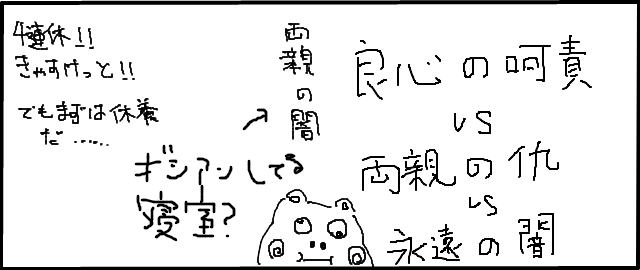 4連休!!
きゃすけっと!!
でもまずは休養
だ……
両親の闇
ギシアンしてる
寝室?
良心の呵責
VS
両親の仇
VS
永遠の闇